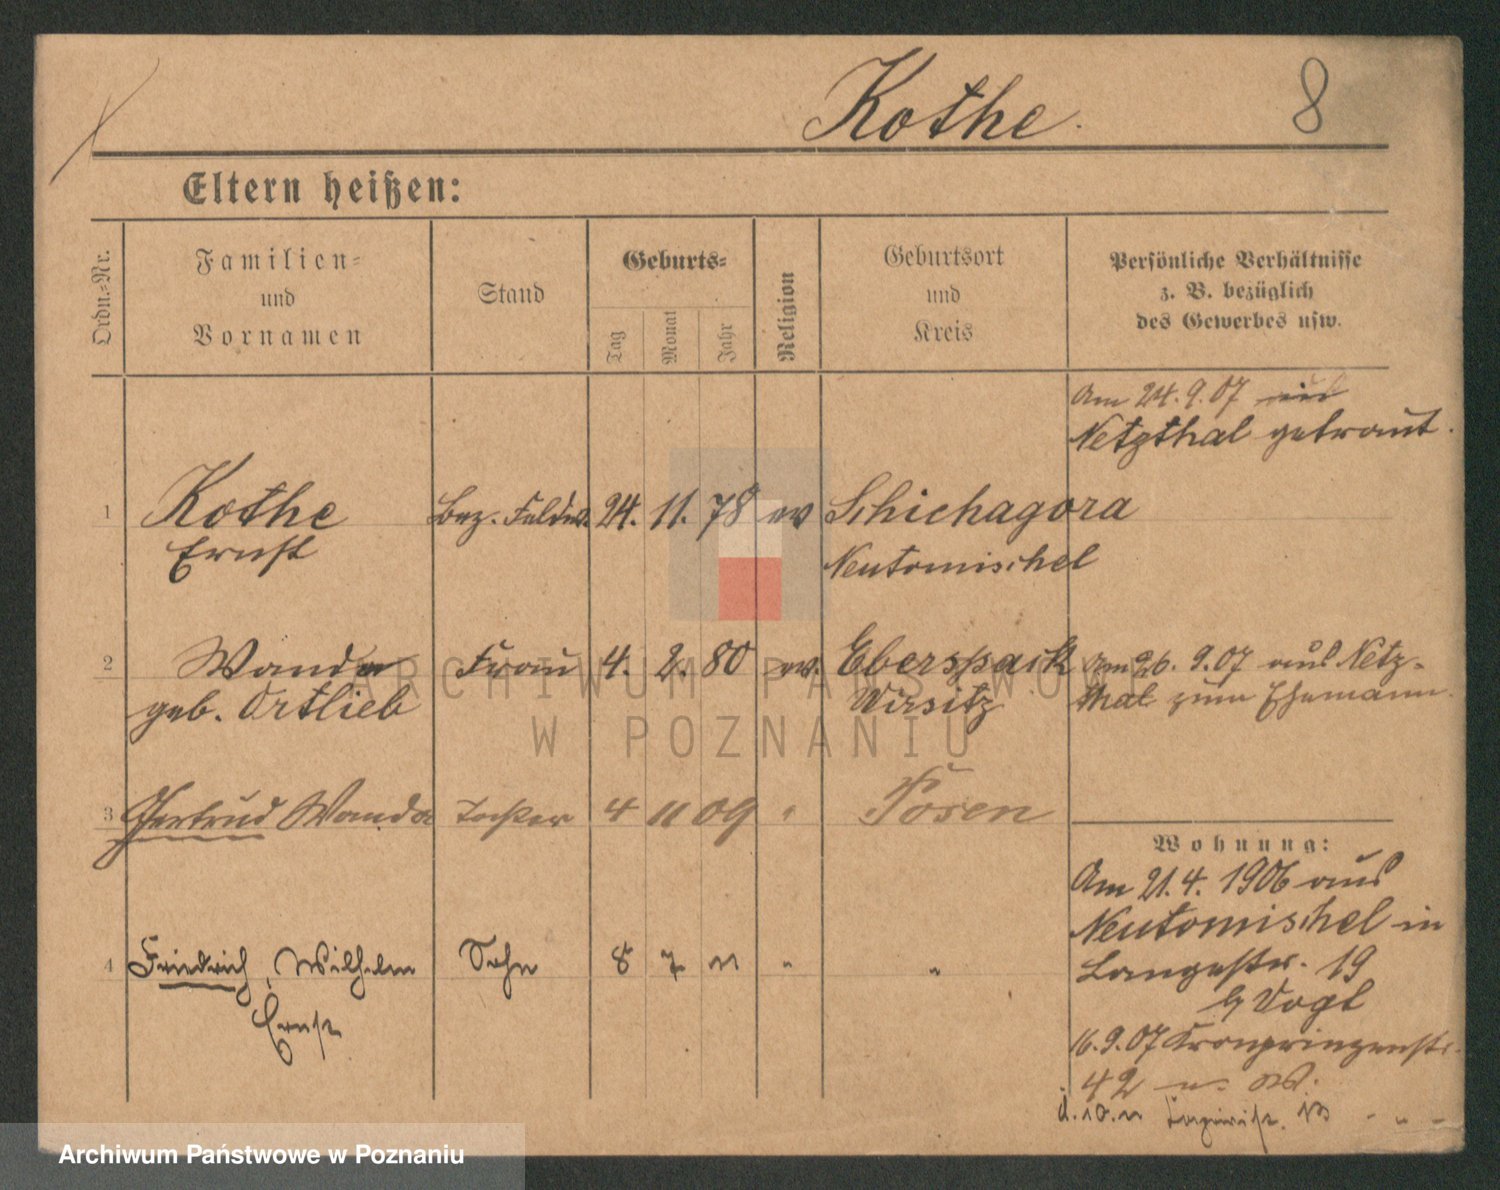 Kothe. 8
Eltern heißen:
Ordn.-Nr.
Familien-
und
Vornamen
Stand
Geburts-
Tag
Monat
Jahr
Religion
Geburtsort
und
Kreis
Persönliche Verhältnisse
z. B. bezüglich
des Gewerbes usw.
Am 24. 9. 07 aus
Netzthal getraut.
1 Kothe Bez. Feldw. 24. 11. 78 ev Schichagora
Ernst Neutomischel
2 Wanda Frau 4. 2. 80 ev. Eberspark Am 26. 9. 07 aus Netz-
geb. Ortlieb Wirsitz thal zum Ehemann.
3 Gertrud Wanda Tochter 4 11 09 " Posen
Wohnung:
Am 21. 4. 1906 aus
Neutomischel in
4 Friedrich, Wilhelm Sohn 8 7 11 " " Langestr. 19
Ernst b/ Vogt
16. 9. 07 Kronprinzenstr.
42 n. W.
d. 10. 11 13 - " -
ARCHIWUM PAŃSTWOWE
W POZNANIU
Archiwum Państwowe w Poznaniu